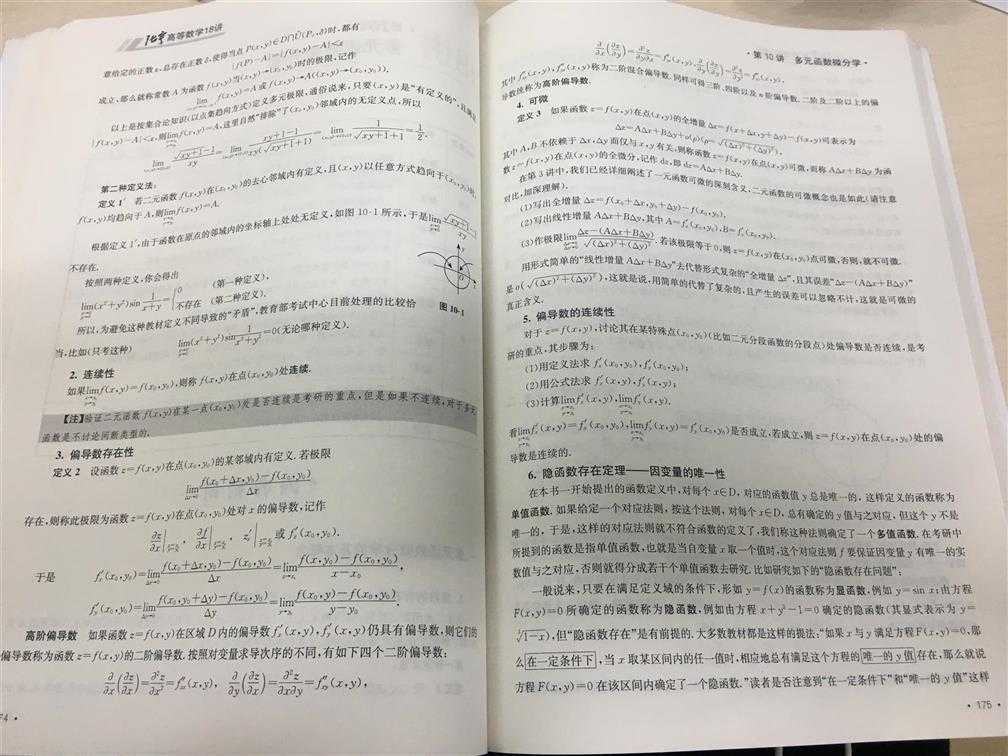 张宇高等数学18讲
意给定的正数ε,总存在正数δ,使得当点P(x,y)∈D∩Ů(P₀,δ)时,都有
|f(P)-A|=|f(x,y)-A|<ε
成立,那么就称常数A为函数f(x,y)当(x,y)→(x₀,y₀)时的极限,记作
lim f(x,y)=A或f(x,y)→A((x,y)→(x₀,y₀)).
以上是按集合论知识(以点集趋向方式)定义多元极限,通俗说来,只要(x,y)是“有定义的”,且满足
|f(x,y)-A|<ε,则lim f(x,y)=A,这里自然“排除”了(x₀,y₀)邻域内的无定义点,所以
lim (√(xy+1)-1)/xy = lim (xy+1-1)/(xy(√(xy+1)+1)) = lim 1/(√(xy+1)+1) = 1/2.
第二种定义法:
定义1′ 若二元函数f(x,y)在(x₀,y₀)的去心邻域内有定义,且(x,y)以任意方式趋向于(x₀,y₀)时,
f(x,y)均趋向于A,则lim f(x,y)=A.
根据定义1′,由于函数在原点的邻域内的坐标轴上处处无定义,如图10-1所示,于是lim (√(xy+1)-1)/xy
不存在.
按照两种定义,你会得出
lim(x²+y²)sin 1/(x+y) = {0 (第一种定义),
不存在 (第二种定义).
图10-1
所以,为避免这种教材定义不同导致的“矛盾”,教育部考试中心目前处理的比较恰
当,比如(只考这种) lim(x²+y²)sin 1/(x²+y²)=0(无论哪种定义).
2. 连续性
如果lim f(x,y)=f(x₀,y₀),则称f(x,y)在点(x₀,y₀)处连续.
【注】验证二元函数f(x,y)在某一点(x₀,y₀)处是否连续是考研的重点,但是如果不连续,对于多元
函数是不讨论间断类型的.
3. 偏导数存在性
定义2 设函数z=f(x,y)在点(x₀,y₀)的某邻域内有定义.若极限
lim (f(x₀+Δx,y₀)-f(x₀,y₀))/Δx
存在,则称此极限为函数z=f(x,y)在点(x₀,y₀)处对x的偏导数,记作
∂z/∂x|, ∂f/∂x|, z′ₓ| 或f′ₓ(x₀,y₀).
于是 f′ₓ(x₀,y₀)=lim (f(x₀+Δx,y₀)-f(x₀,y₀))/Δx=lim (f(x,y₀)-f(x₀,y₀))/(x-x₀),
f′ᵧ(x₀,y₀)=lim (f(x₀,y₀+Δy)-f(x₀,y₀))/Δy=lim (f(x₀,y)-f(x₀,y₀))/(y-y₀).
高阶偏导数 如果函数z=f(x,y)在区域D内的偏导数f′ₓ(x,y),f′ᵧ(x,y)仍具有偏导数,则它们的
偏导数称为函数z=f(x,y)的二阶偏导数.按照对变量求导次序的不同,有如下四个二阶偏导数:
∂/∂x(∂z/∂x)=∂²z/∂x²=f″ₓₓ(x,y), ∂/∂y(∂z/∂x)=∂²z/∂x∂y=f″ₓᵧ(x,y),
·第10讲 多元函数微分学·
∂/∂x(∂z/∂y)=∂²z/∂y∂x=f″ᵧₓ(x,y), ∂/∂y(∂z/∂y)=∂²z/∂y²=f″ᵧᵧ(x,y).
其中f″ₓᵧ(x,y),f″ᵧₓ(x,y)称为二阶混合偏导数.同样可得三阶、四阶以及n阶偏导数.二阶及二阶以上的偏
导数统称为高阶偏导数.
4. 可微
定义3 如果函数z=f(x,y)在点(x,y)的全增量Δz=f(x+Δx,y+Δy)-f(x,y)可表示为
Δz=AΔx+BΔy+o(ρ)(ρ=√((Δx)²+(Δy)²)),
其中A,B不依赖于Δx,Δy而仅与x,y有关,则称函数z=f(x,y)在点(x,y)可微,而称AΔx+BΔy为函
数z=f(x,y)在点(x,y)的全微分,记作dz,即dz=AΔx+BΔy.
在第3讲中,我们已经详细阐述了一元函数可微的深刻含义,二元函数的可微概念也是如此(请注意
对比,加深理解).
(1)写出全增量Δz=f(x₀+Δx,y₀+Δy)-f(x₀,y₀),
(2)写出线性增量AΔx+BΔy,其中A=f′ₓ(x₀,y₀),B=f′ᵧ(x₀,y₀),
(3)作极限lim (Δz-(AΔx+BΔy))/√((Δx)²+(Δy)²).若该极限等于0,则z=f(x,y)在(x₀,y₀)点可微,否则,就不可微.
用形式简单的“线性增量AΔx+BΔy”去代替形式复杂的“全增量Δz”,且其误差“Δz-(AΔx+BΔy)”
是o(√((Δx)²+(Δy)²)),这就是说,用简单的代替了复杂的,且产生的误差可以忽略不计,这就是可微的
真正含义.
5. 偏导数的连续性
对于z=f(x,y),讨论其在某特殊点(x₀,y₀)(比如二元分段函数的分段点)处偏导数是否连续,是考
研的重点,其步骤为:
(1)用定义法求f′ₓ(x₀,y₀),f′ᵧ(x₀,y₀);
(2)用公式法求f′ₓ(x,y),f′ᵧ(x,y);
(3)计算lim f′ₓ(x,y),lim f′ᵧ(x,y).
看lim f′ₓ(x,y)=f′ₓ(x₀,y₀),lim f′ᵧ(x,y)=f′ᵧ(x₀,y₀)是否成立.若成立,则z=f(x,y)在点(x₀,y₀)处的偏
导数是连续的.
6. 隐函数存在定理——因变量的唯一性
在本书一开始提出的函数定义中,对每个x∈D,对应的函数值y总是唯一的,这样定义的函数称为
单值函数.如果给定一个对应法则,按这个法则,对每个x∈D,总有确定的y值与之对应,但这个y不是
唯一的,于是,这样的对应法则就不符合函数的定义了,我们称这种法则确定了一个多值函数.在考研中
所提到的函数是指单值函数,也就是当自变量x取一个值时,这个对应法则f要保证因变量y有唯一的实
数值与之对应,否则就得分成若干个单值函数去研究.比如研究如下的“隐函数存在问题”:
一般说来,只要在满足定义域的条件下,形如y=f(x)的函数称为显函数,例如y=sin x;由方程
F(x,y)=0所确定的函数称为隐函数,例如由方程x+y³-1=0确定的隐函数(其显式表示为y=
∛(1-x)),但“隐函数存在”是有前提的.大多数教材都是这样的提法:“如果x与y满足方程F(x,y)=0,那
么在一定条件下,当x取某区间内的任一值时,相应地总有满足这个方程的唯一的y值存在,那么就说
方程F(x,y)=0在该区间内确定了一个隐函数.”读者是否注意到“在一定条件下”和“唯一的y值”这样
·175·